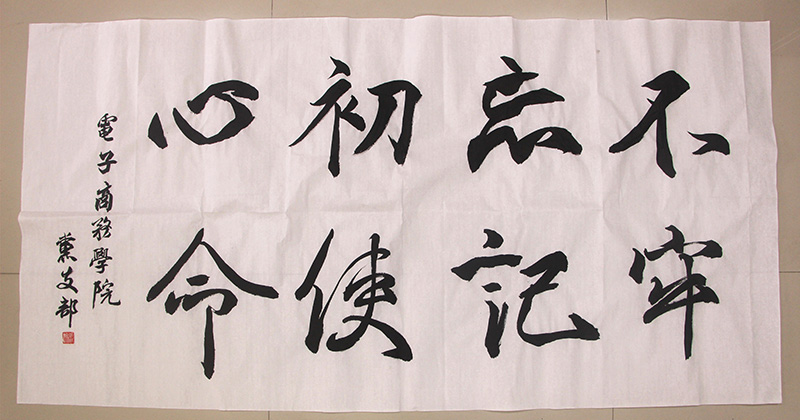 不忘初心
牢记使命
電子商務學院
黨支部